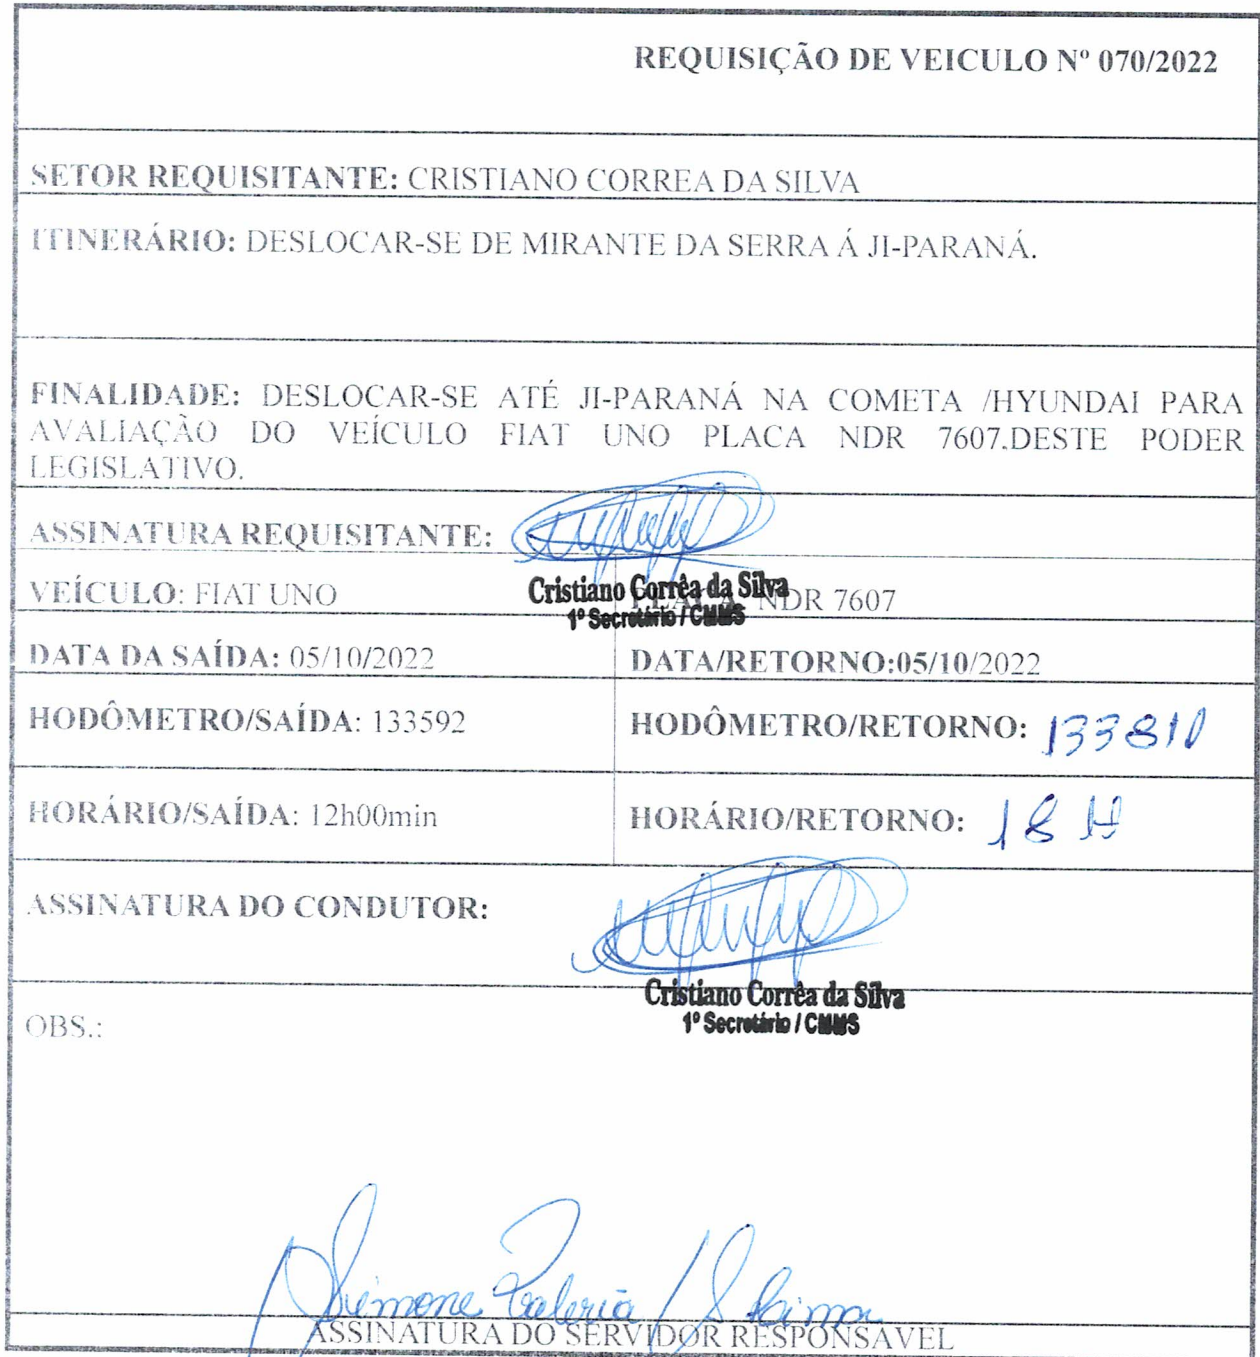 REQUISIÇÃO DE VEICULO Nº 070/2022
SETOR REQUISITANTE: CRISTIANO CORREA DA SILVA
ITINERÁRIO: DESLOCAR-SE DE MIRANTE DA SERRA Á JI-PARANÁ.
FINALIDADE: DESLOCAR-SE ATÉ JI-PARANÁ NA COMETA /HYUNDAI PARA
AVALIAÇÃO DO VEÍCULO FIAT UNO PLACA NDR 7607.DESTE PODER
LEGISLATIVO.
ASSINATURA REQUISITANTE:
Cristiano Corrêa da Silva
1º Secretário / CMMS
VEÍCULO: FIAT UNO PLACA NDR 7607
DATA DA SAÍDA: 05/10/2022 DATA/RETORNO:05/10/2022
HODÔMETRO/SAÍDA: 133592 HODÔMETRO/RETORNO: 133810
HORÁRIO/SAÍDA: 12h00min HORÁRIO/RETORNO: 18 H
ASSINATURA DO CONDUTOR:
Cristiano Corrêa da Silva
1º Secretário / CMMS
OBS.:
Simone Valeria
ASSINATURA DO SERVIDOR RESPONSAVEL